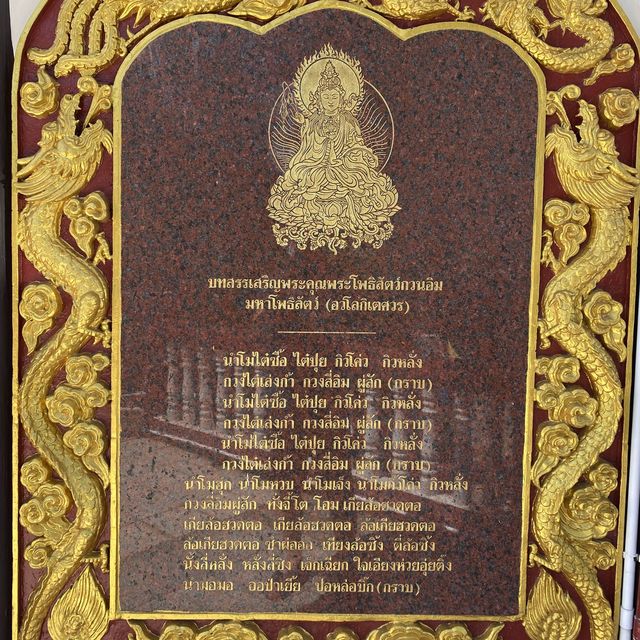 บทสรรเสริญพระคุณพระโพธิสัตว์กวนอิม
มหาโพธิสัตว์ (อวโลกิเตศวร)
นำโมไต๋ซื้อ ไต๋ปุย กิวโค่ว กิวหลั่ง
กวงไต๋เล่งก้า กวงสี่อิม ผู่สัก (กราบ)
นำโมไต๋ซื้อ ไต๋ปุย กิวโค่ว กิวหลั่ง
กวงไต๋เล่งก้า กวงสี่อิม ผู่สัก (กราบ)
นำโมไต๋ซื้อ ไต๋ปุย กิวโค่ว กิวหลั่ง
กวงไต๋เล่งก้า กวงสี่อิม ผู่สัก (กราบ)
นำโมฮุก นำโมหวบ นำโมเจ็ง นำโมกิวโค่ว กิวหลั่ง
กวงสี่อิมผู่สัก ทั่งจี้โต โอม เกียล้อฮวดตอ
เกียล้อฮวดตอ เกียล้อฮวดตอ ล้อเกียฮวดตอ
ล้อเกียฮวดตอ ซำผ่อออ เทียงล้อซิ้ง ตี่ล้อซิ้ง
นั้งลี่หลั่ง หลั่งลี่ซิง เจ็กเฉียก ใจเอียงห่วยอุ่ยติ๊ง
นำมอมอ ออป่าเยี้ย ปอหล่อบิ๊ก (กราบ)